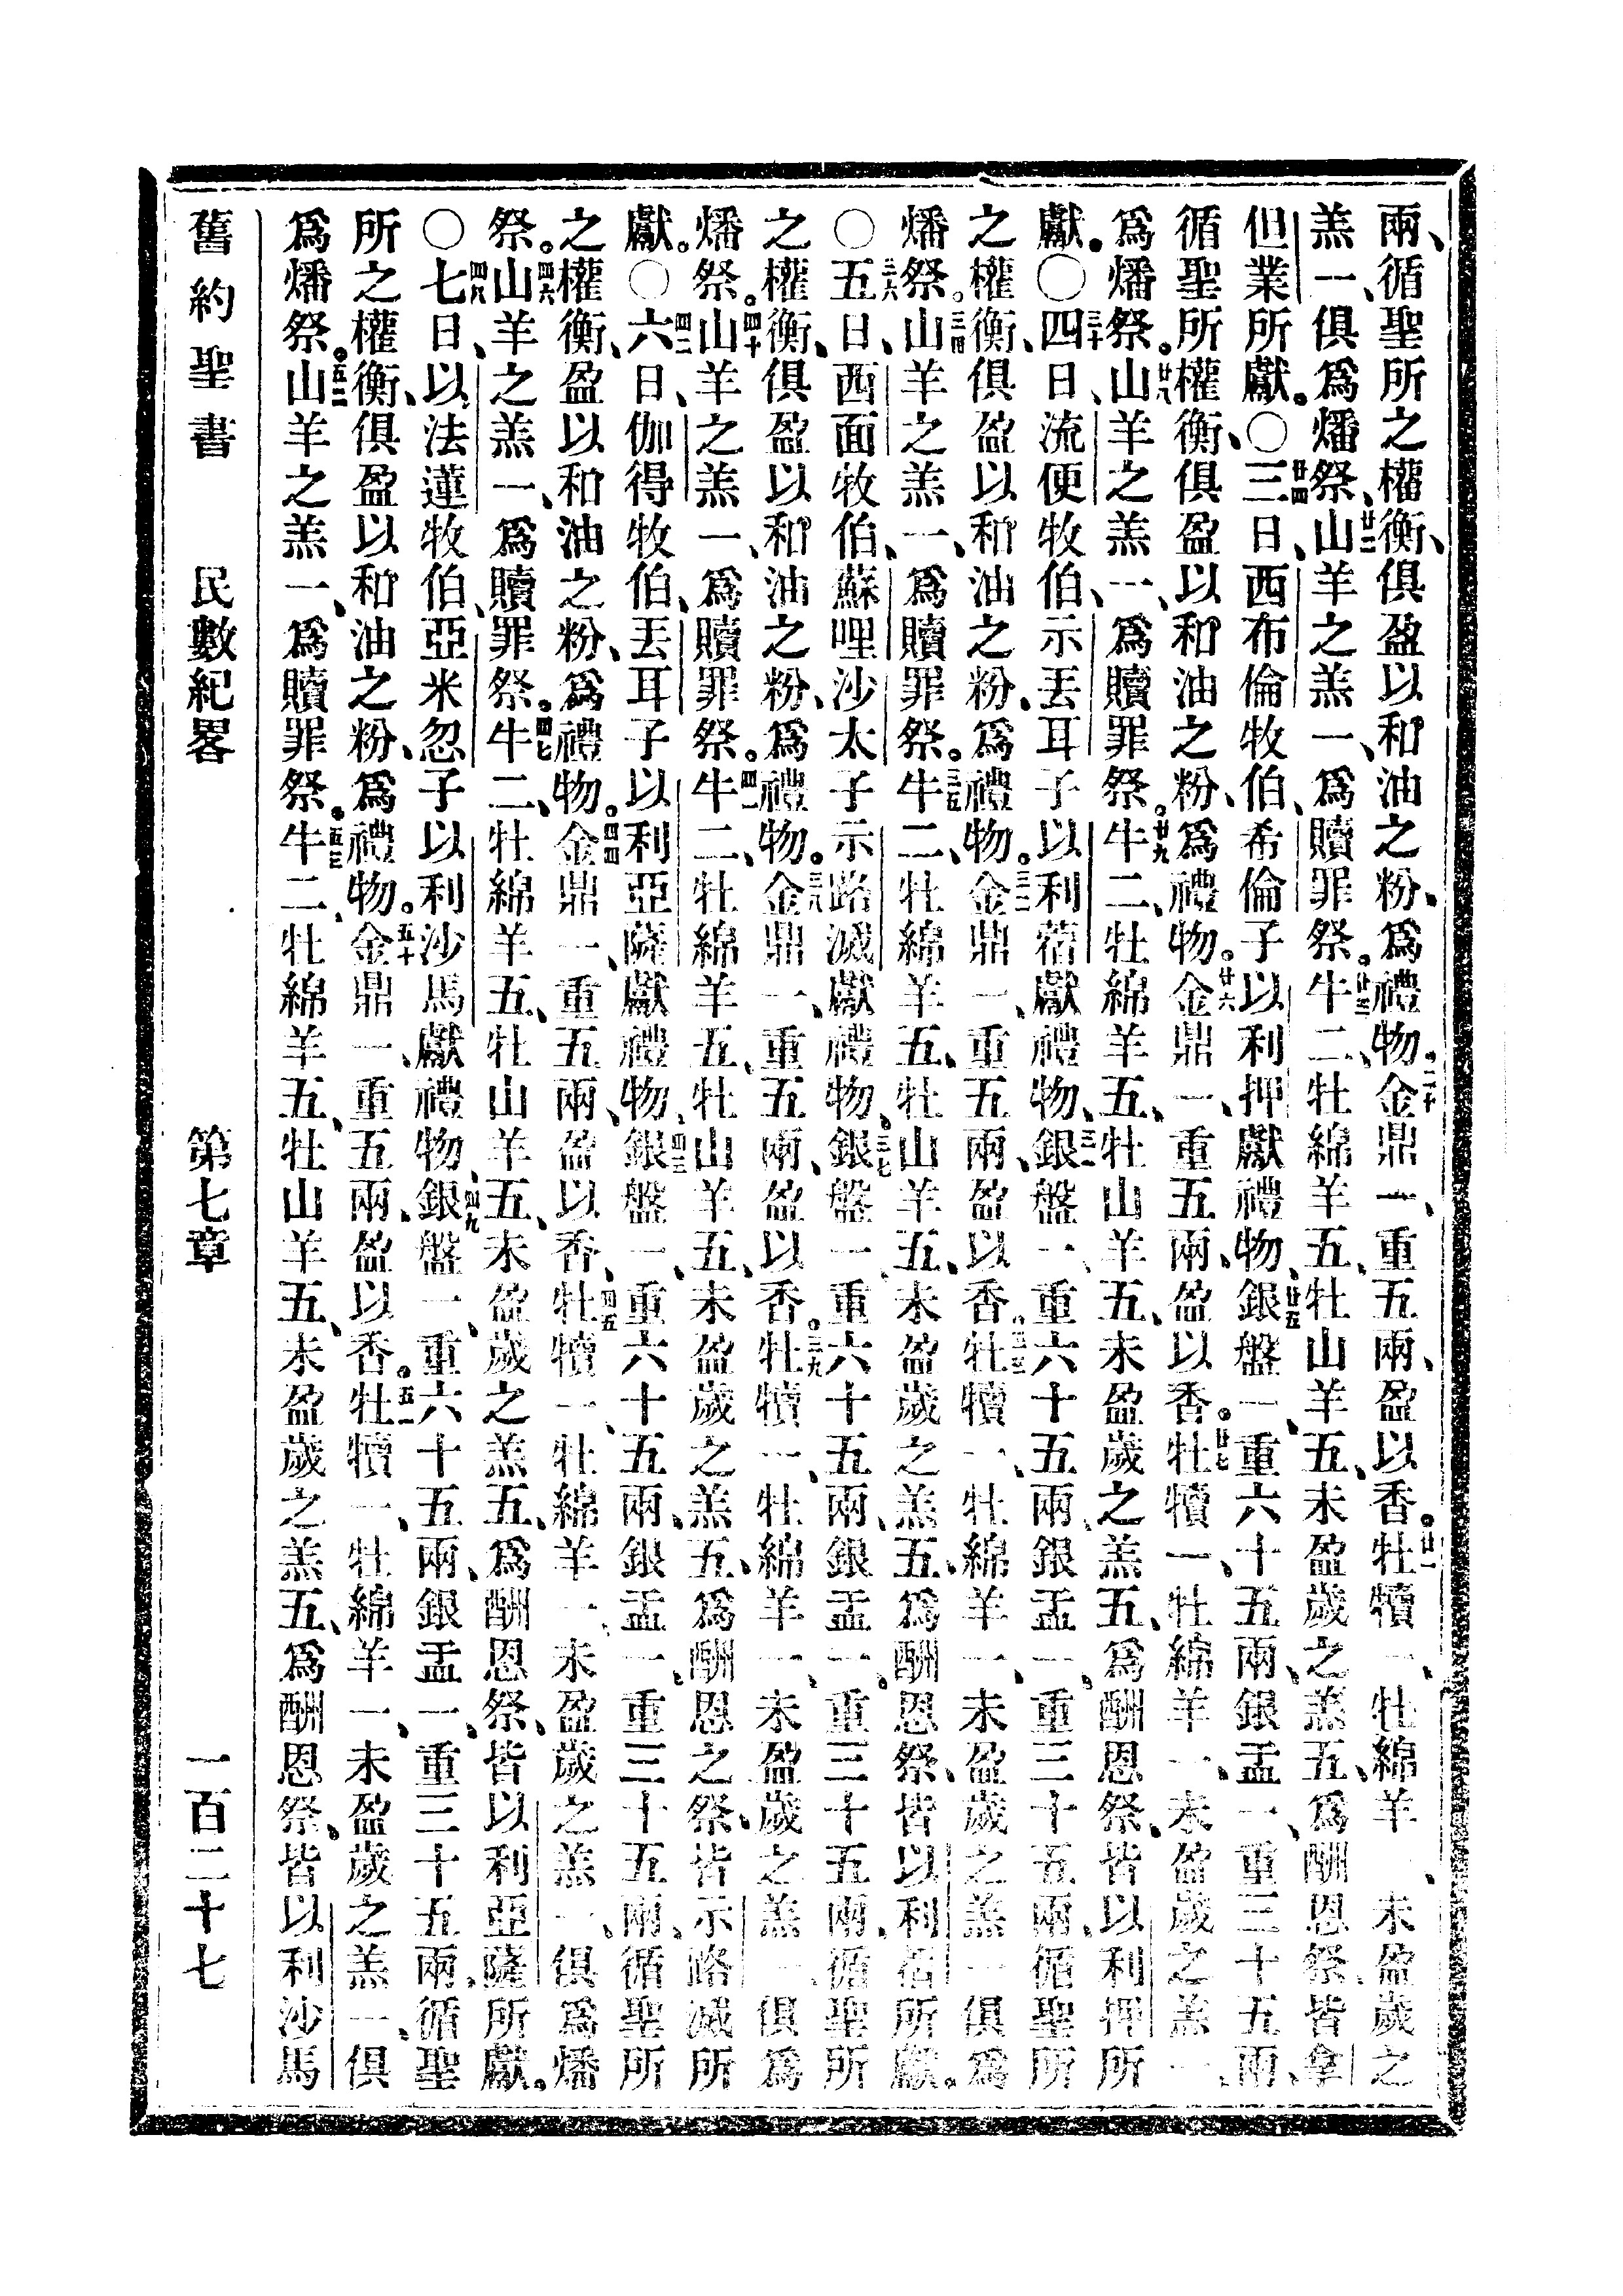 兩、循聖所之權衡、俱盈以和油之粉、爲禮物。二十金鼎一、重五兩、盈以香。廿一牡犢一、牡綿羊一、未盈歲之
羔一、俱爲燔祭、廿二山羊之羔一、爲贖罪祭。廿三牛二、牡綿羊五、牡山羊五、未盈歲之羔五、爲酬恩祭、皆拿
但業所獻。〇廿四三日、西布倫牧伯、希倫子以利押獻禮物、廿五銀盤一、重六十五兩、銀盂一、重三十五兩、
循聖所權衡、俱盈以和油之粉、爲禮物。廿六金鼎一、重五兩、盈以香。廿七牡犢一、牡綿羊一、未盈歲之羔一、
爲燔祭。廿八山羊之羔一、爲贖罪祭。廿九牛二、牡綿羊五、牡山羊五、未盈歲之羔五、爲酬恩祭、皆以利押所
獻。〇三十四日、流便牧伯、示丟耳子以利蓿獻禮物、三一銀盤一、重六十五兩、銀盂一、重三十五兩、循聖所
之權衡、俱盈以和油之粉、爲禮物。三二金鼎一、重五兩、盈以香。三三牡犢一、牡綿羊一、未盈歲之羔一俱爲
燔祭。三四山羊之羔一、爲贖罪祭。三五牛二、牡綿羊五、牡山羊五、未盈歲之羔五、爲酬恩祭、皆以利蓿所獻。
〇三六五日、西面牧伯、蘇哩沙太子示路滅獻禮物、三七銀盤一、重六十五兩、銀盂一、重三十五兩、循聖所
之權衡、俱盈以和油之粉、爲禮物。三八金鼎一、重五兩、盈以香。三九牡犢一、牡綿羊一、未盈歲之羔一、俱爲
燔祭。四十山羊之羔一、爲贖罪祭。四一牛二、牡綿羊五、牡山羊五、未盈歲之羔五、爲酬恩之祭、皆示路滅所
獻。〇四二六日、伽得牧伯、丟耳子以利亞薩獻禮物、四三銀盤一、重六十五兩、銀盂一、重三十五兩、循聖所
之權衡、盈以和油之粉、爲禮物。四四金鼎一、重五兩、盈以香、四五牡犢一、牡綿羊一、未盈歲之羔一、俱爲燔
祭。四六山羊之羔一、爲贖罪祭。四七牛二、牡綿羊五、牡山羊五、未盈歲之羔五、爲酬恩祭、皆以利亞薩所獻。
〇四八七日、以法蓮牧伯、亞米忽子以利沙馬獻禮物、四九銀盤一、重六十五兩、銀盂一、重三十五兩、循聖
所之權衡、俱盈以和油之粉、爲禮物。五十金鼎一、重五兩、盈以香。五一牡犢一、牡綿羊一、未盈歲之羔一、俱
爲燔祭。五二山羊之羔一、爲贖罪祭。五三牛二、牡綿羊五、牡山羊五、未盈歲之羔五、爲酬恩祭、皆以利沙馬
舊約聖書 民數紀畧 第七章 一百二十七